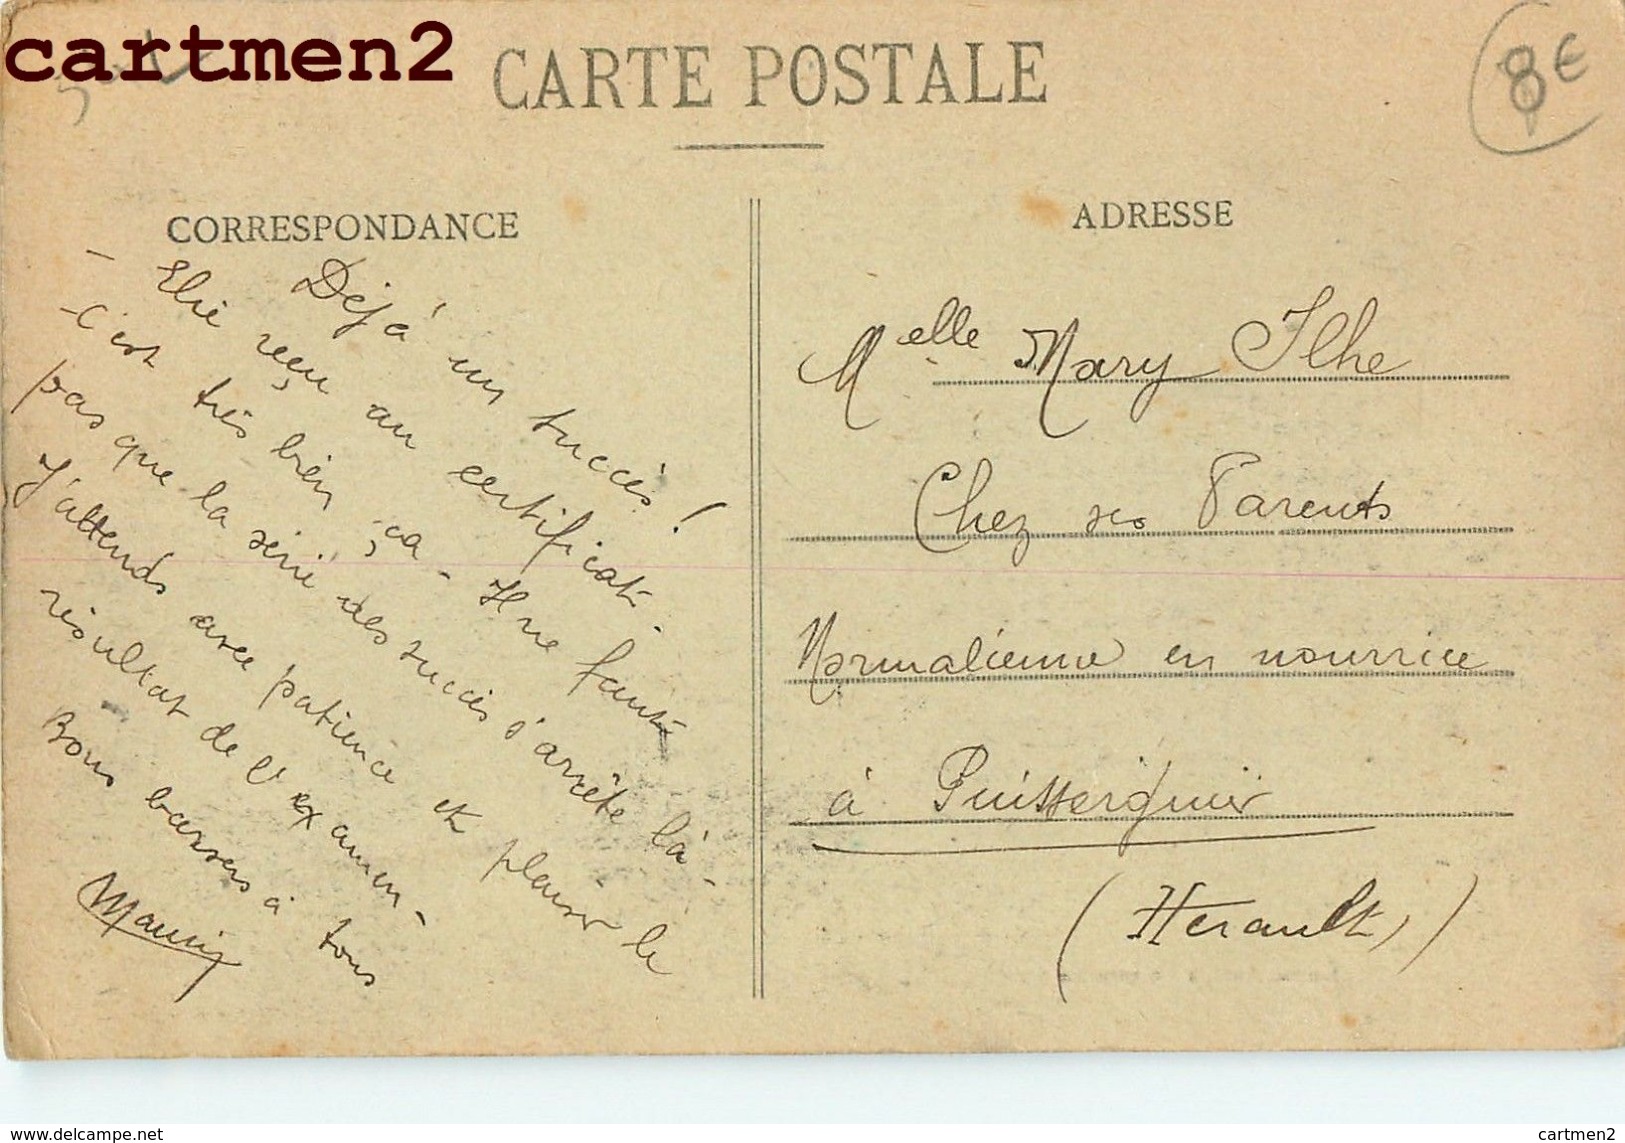 cartmen2
CARTE POSTALE
8€
CORRESPONDANCE
Déjà un succès !
- Elie reçu au certificat -
- C'est très bien ça - Il ne faut
pas que la série des succès s'arrête là -
J'attends avec patience et plaisir le
résultat de l'examen -
Bons baisers à tous
ADRESSE
Melle Mary Ilhe
Chez ses Parents
Normalienne en nourrice
à Puisserguier
(Herault)
www.delcampe.net
cartmen2